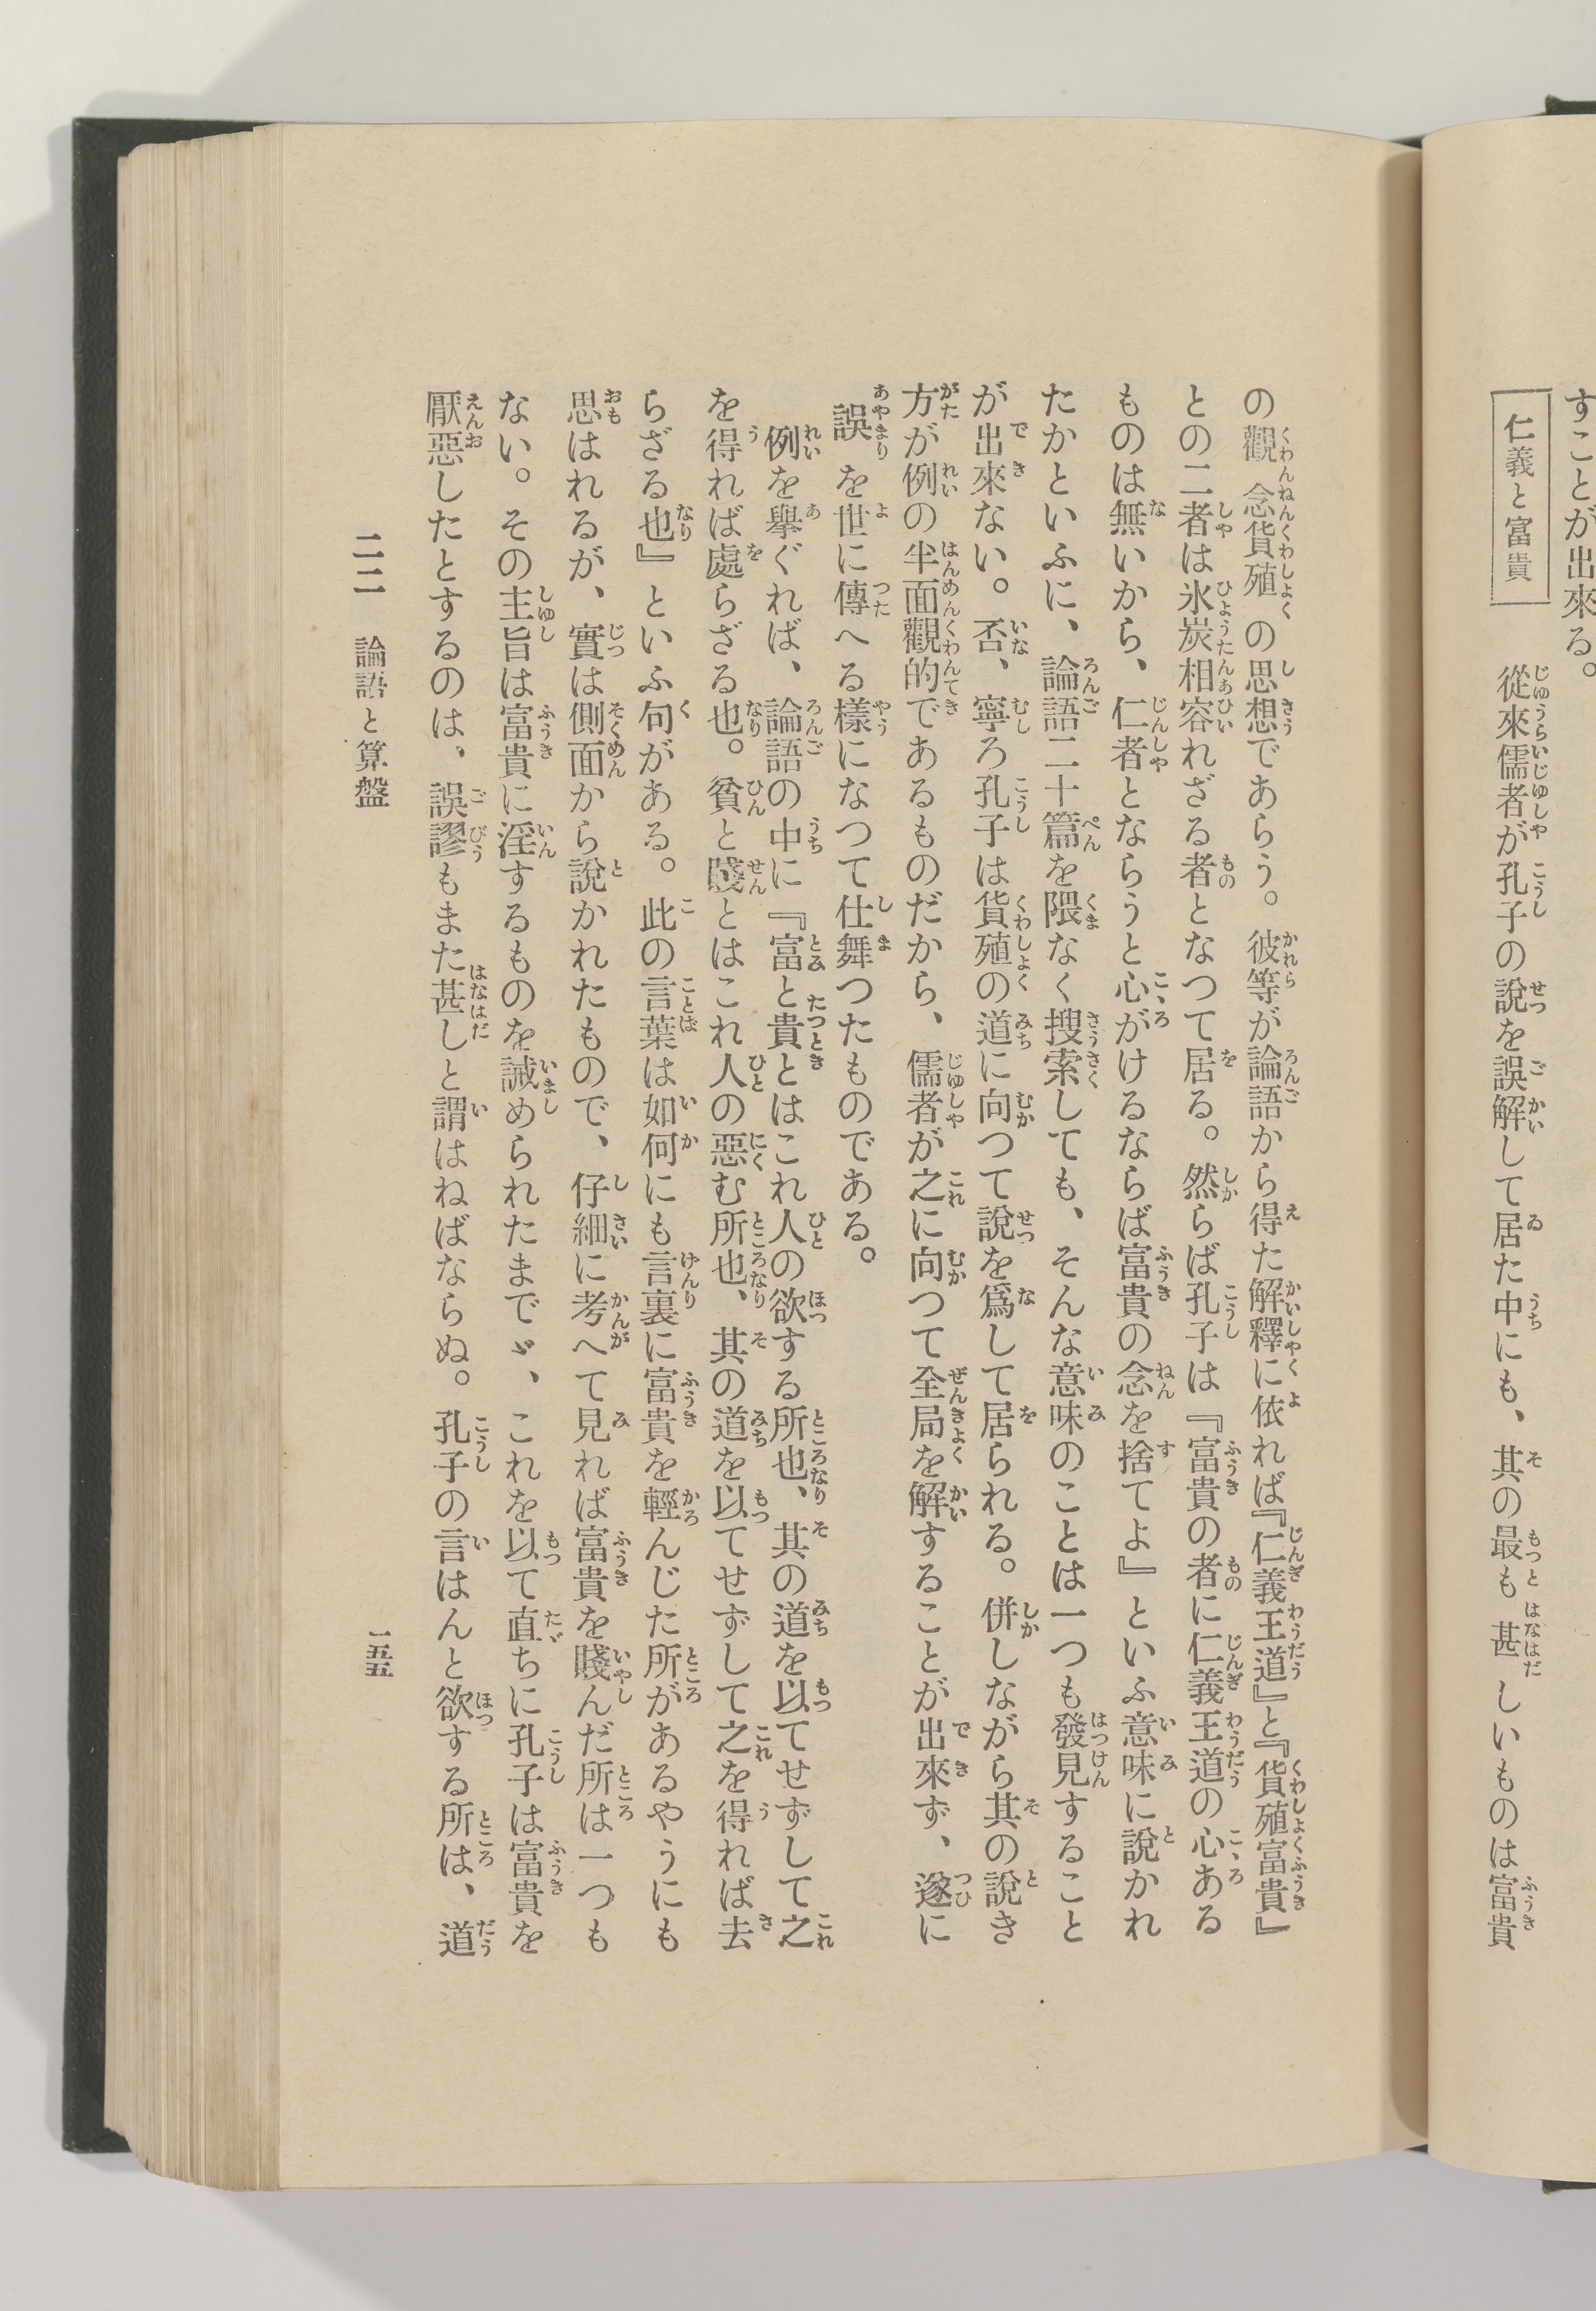 すことが出來る。
仁義と富貴
從來儒者が孔子の說を誤解して居た中にも、其の最も甚しいものは富貴
の觀念貨殖の思想であらう。彼等が論語から得た解釋に依れば『仁義王道』と『貨殖富貴』
との二者は氷炭相容れざる者となつて居る。然らば孔子は『富貴の者に仁義王道の心ある
ものは無いから、仁者とならうと心がけるならば富貴の念を捨てよ』といふ意味に說かれ
たかといふに、論語二十篇を隈なく搜索しても、そんな意味のことは一つも發見すること
が出來ない。否、寧ろ孔子は貨殖の道に向つて說を爲して居られる。併しながら其の說き
方が例の半面觀的であるものだから、儒者が之に向つて全局を解することが出來ず、遂に
誤を世に傳へる樣になつて仕舞つたものである。
例を擧ぐれば、論語の中に『富と貴とはこれ人の欲する所也、其の道を以てせずして之
を得れば處らざる也。貧と賤とはこれ人の惡む所也、其の道を以てせずして之を得れば去
らざる也』といふ句がある。此の言葉は如何にも言裏に富貴を輕んじた所があるやうにも
思はれるが、實は側面から說かれたもので、仔細に考へて見れば富貴を賤んだ所は一つも
ない。その主旨は富貴に淫するものを誡められたまでゞ、これを以て直ちに孔子は富貴を
厭惡したとするのは、誤謬もまた甚しと謂はねばならぬ。孔子の言はんと欲する所は、道
二二 論語と算盤
一五五